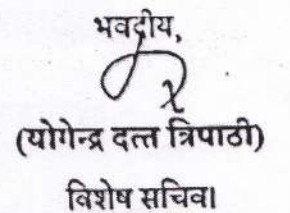 भवदीय,
(योगेन्द्र दत्त त्रिपाठी)
विशेष सचिव।